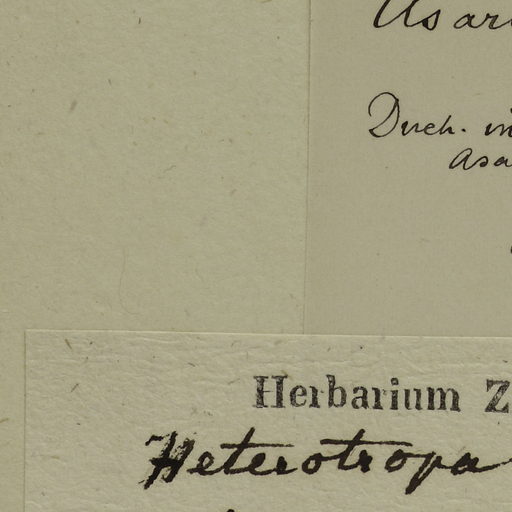 Asar
Duch. in
Asa
Herbarium Z
Heterotropa